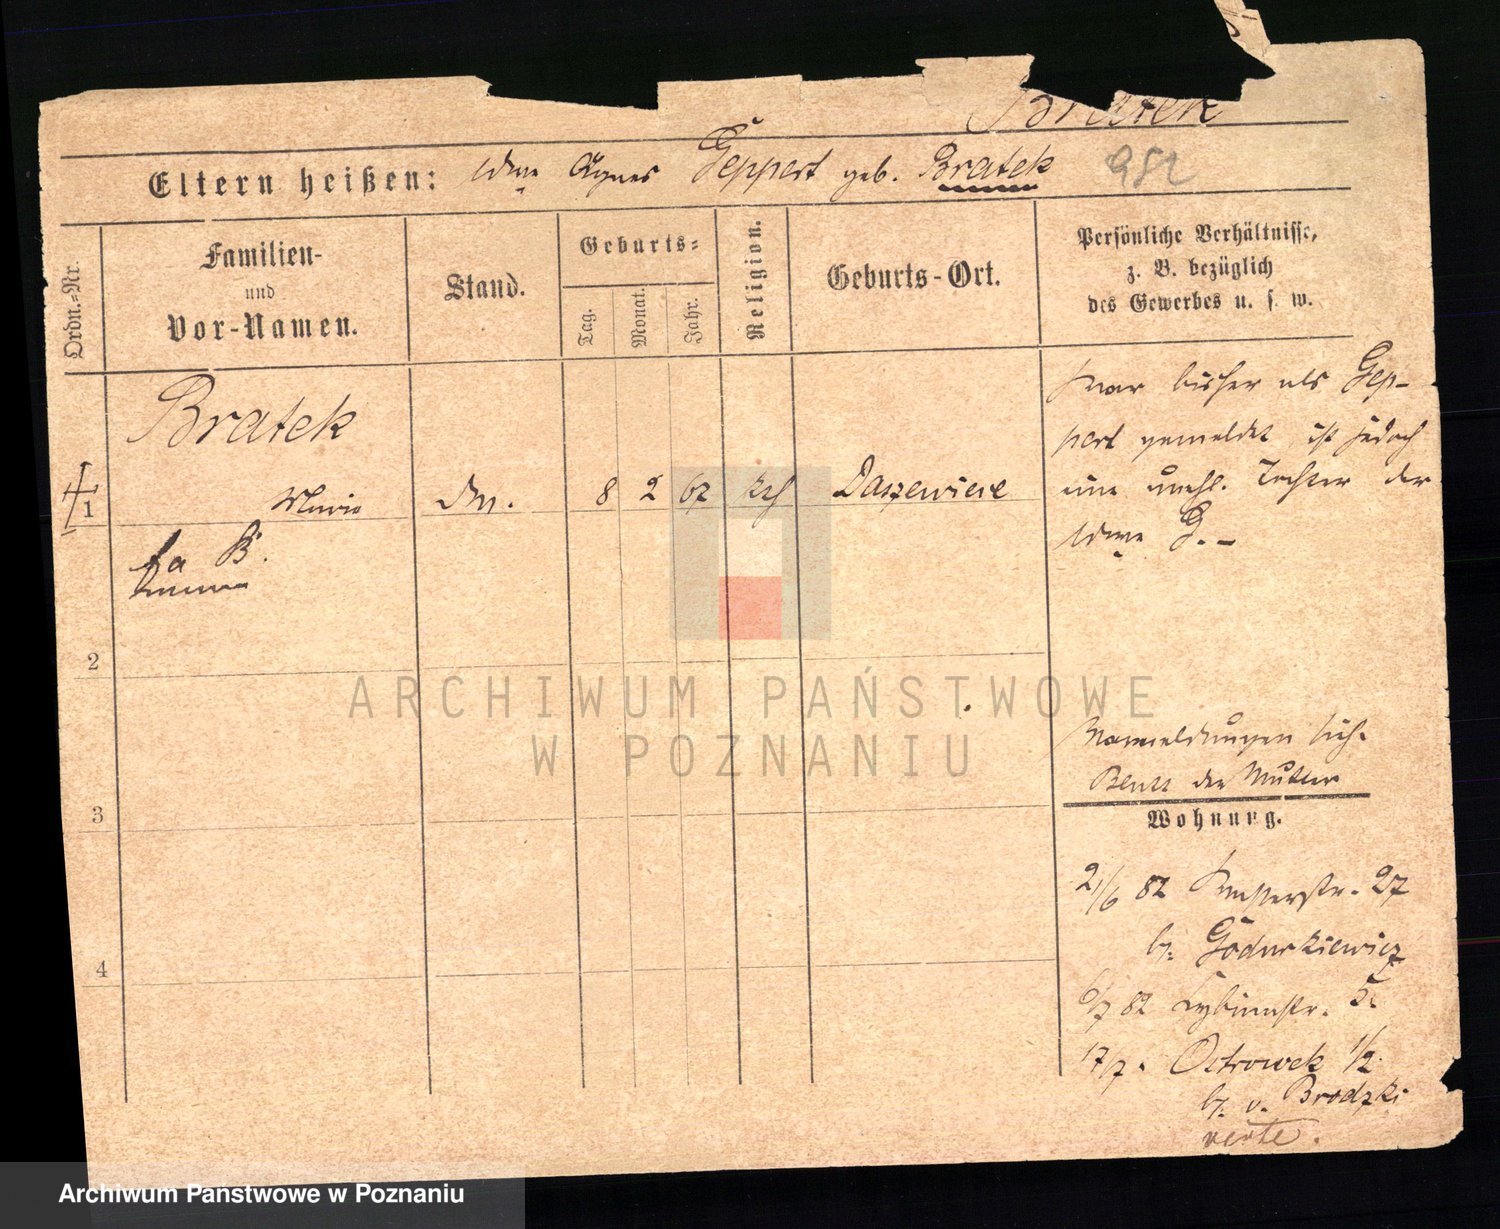 Bratek
Eltern heißen: Wwe Agnes Geppert geb. Bratek 952
Ordn.-Nr.
Familien-
und
Vor-Namen.
Stand.
Geburts-
Tag.
Monat.
Jahr.
Religion.
Geburts-Ort.
Persönliche Verhältnisse,
z. B. bezüglich
des Gewerbes u. s. w.
Bratek
1 Marie 8 2 67 kth Daszewice
fa B.
war bisher als Gep-
pert gemeldet, ist jedoch
eine unehl. Tochter der
Wwe G. -
2
3
4
Anmeldungen sieh.
Blatt der Mutter
Wohnung.
21/6 82 27
b. Godurkiewicz
6/7 82 5.
17/7. Ostrowek 1/2.
b. v. Brodzki
verte.
ARCHIWUM PAŃSTWOWE
W POZNANIU
Archiwum Państwowe w Poznaniu